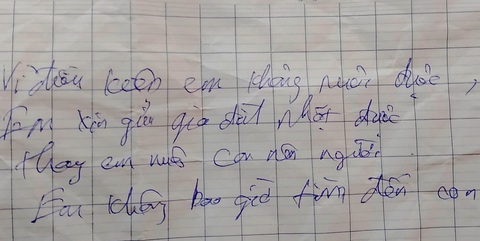 Vì điều kiện em không nuôi được,
Em xin gửi gia đình nhặt được
thay em nuôi con nên người.
Em không bao giờ tìm đến con